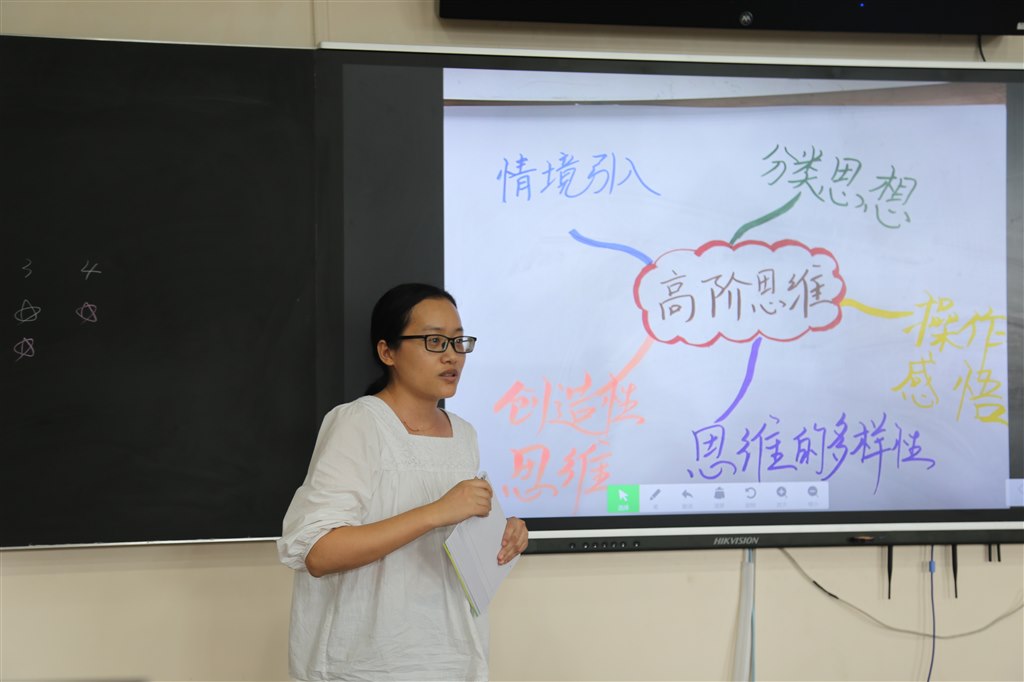 3 4
情境引入
分类思想
高阶思维
操作
感悟
创造性
思维
思维的多样性
HIKVISION